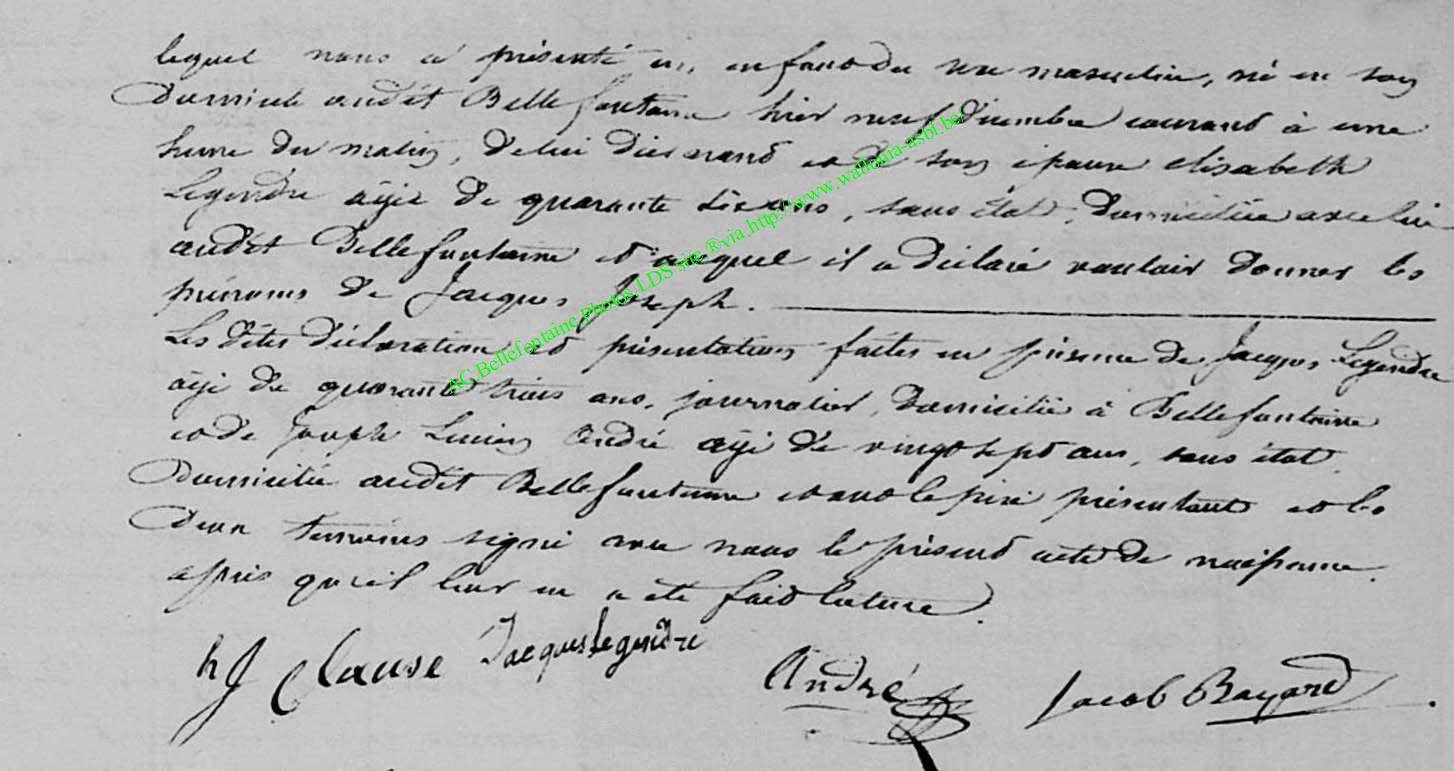 lequel nous a présenté un enfant du sexe masculin, né en son
domicile audit Bellefontaine hier neuf décembre courant à une
heure du matin, de lui déclarant et de son épouse elisabeth
Legendre âgée de quarante ans, sans état, domiciliée avec lui
audit Bellefontaine et auquel il a déclaré vouloir donner les
prénoms de Jacques Joseph.
Les dites déclaration et présentation faites en présence de Jacques Legendre
âgé de quarante trois ans, journalier, domicilié à Bellefontaine
et de Joseph Lucien André âgé de vingt sept ans, sans état,
domicilié audit Bellefontaine et ont le père présentant et les
deux témoins signé avec nous le présent acte de naissance
après qu'il leur en a été fait lecture.
h J Clause Jacques legendre André Jacob Bayard
AC Bellefontaine Photos LDS site ®via.http://www.wallonia-asbl.be/